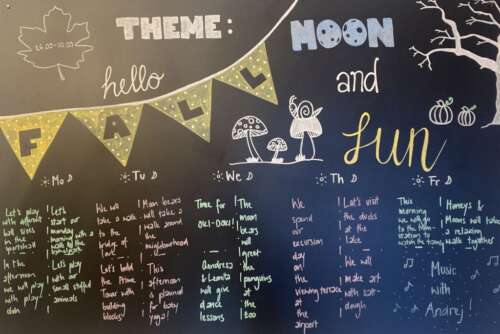 THEME: MOON
hello and
FALL Sun
Mo Tu We Th Fr
Let's play
with
in the
In the
afternoon
we will
play with
play doh
Let's
start our
monday
morning with a
walk to the
Let's play
with
stuffed
animals
We will
take a walk
to the
bridge of
love
Let's build
the Prime
Tower with
building
blocks
Moon bears
will take a
walk around
the
neighborhood
This
afternoon
is planned
for baby
yoga!
Time for
OKI-DOKI!
Andreas
& Leonita
will give
dance
lessons
The
moon
bears
will
great
the
penguins
at
the
zoo
We
spend
our
excursion
day
on
the
viewing terrace
at
the
airport
Let's visit
the ducks
at the
lake
We will
make art
with salt-
dough
This
morning
we will go
to the
Honeys &
Moons will take
a relaxing
walk together
Music
with
Andrej!